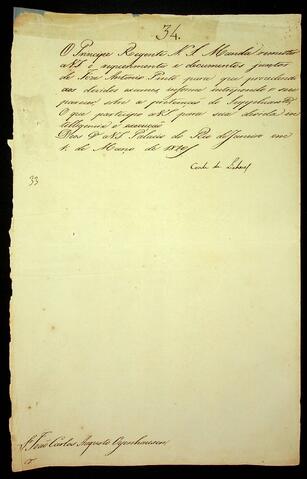 34.
O Principe Regente N. S. Manda remetter
a V S o requerimento e documentos juntos
de Joze Antonio Pinto para que procedendo
aos devidos exames, informe interpondo o seu
parecer, sobre a pertencao do Supplicante.
O que participo a V S para sua devida in
telligencia e execucao
Deos G. a V S Palacio do Rio de Janeiro em
de Março de
33
Conde de Lou
Sr. João Carlos Augusto Oyenhausen